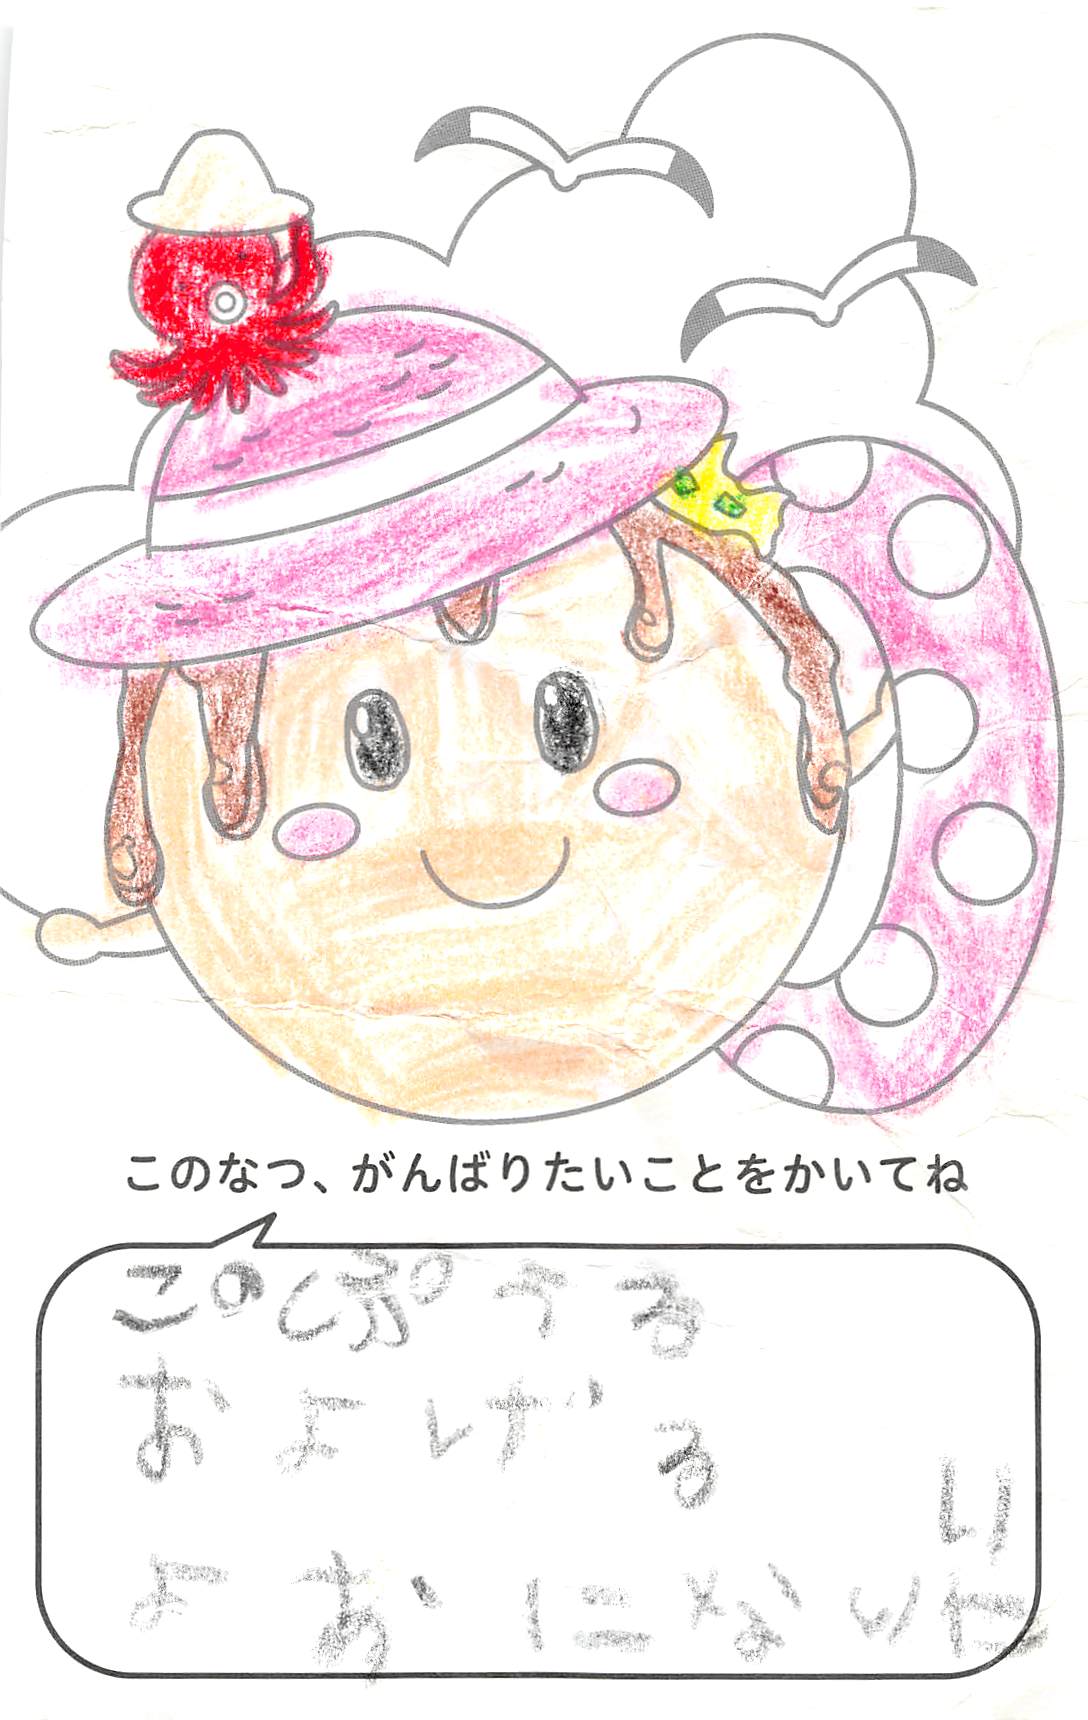 このなつ、がんばりたいことをかいてね
このぷうる
およげる
よおになりたい